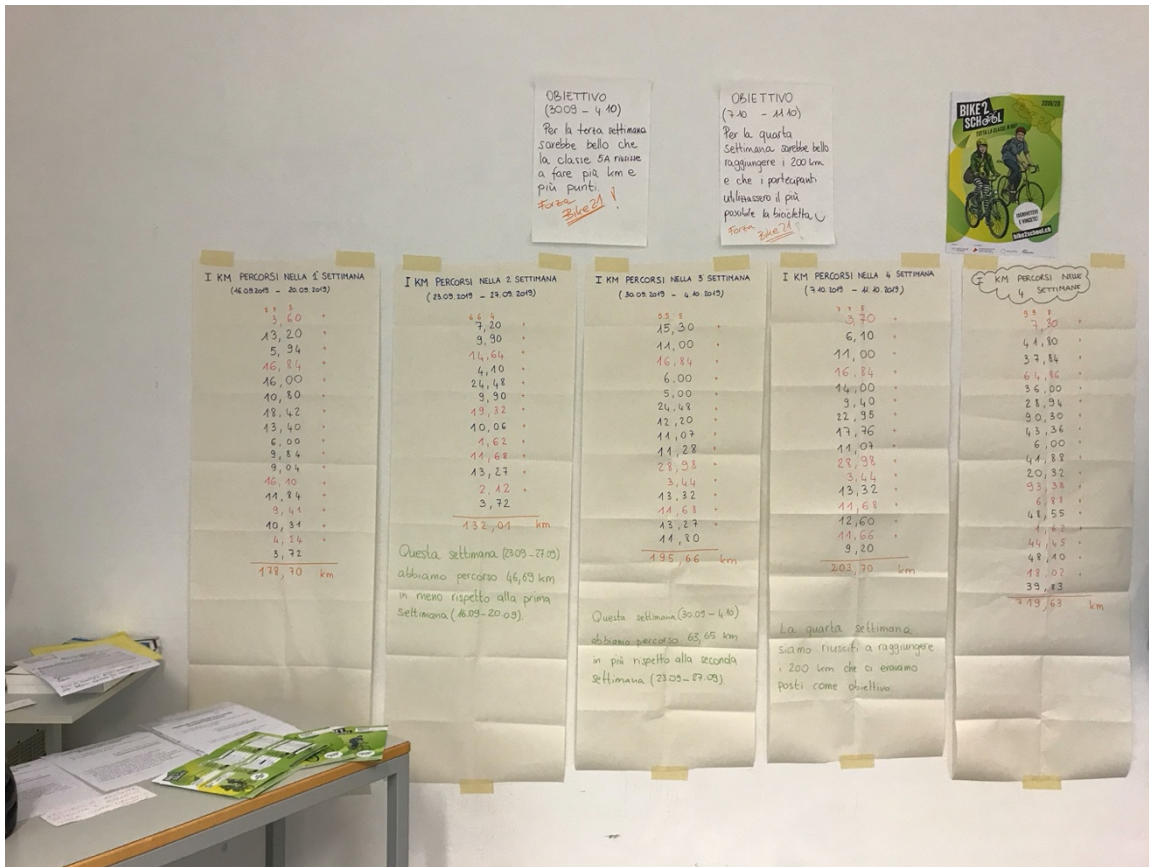 OBIETTIVO
(30.09 – 4.10)
Per la terza settimana
sarebbe bello che
la classe 5A riuscisse
a fare più km e
più punti.
Forza
Bike21!
OBIETTIVO
(7.10 – 11.10)
Per la quarta
settimana sarebbe bello
raggiungere i 200 km
e che i partecipanti
utilizzassero il più
possibile la bicicletta
Forza Bike21!
BIKE2
SCHOOL
2019/20
TUTTA LA CLASSE IN BICI!
bike2school.ch
I KM PERCORSI NELLA 1ª SETTIMANA
(16.09.2019 – 20.09.2019)
3,60
13,20
5,94
16,84
16,00
10,80
18,42
13,40
6,00
9,84
9,04
16,10
11,84
9,41
10,31
4,24
3,72
178,70 km
I KM PERCORSI NELLA 2 SETTIMANA
(23.09.2019 – 27.09.2019)
7,20
9,90
14,64
4,10
24,48
9,90
19,32
10,06
1,62
11,68
13,27
2,12
3,72
132,01 km
Questa settimana (23.09–27.09)
abbiamo percorso 46,69 km
in meno rispetto alla prima
settimana (16.09–20.09).
I KM PERCORSI NELLA 3 SETTIMANA
(30.09.2019 – 4.10.2019)
15,30
11,00
16,84
6.00
5,00
24,48
12,20
11,07
11,28
28,98
3,44
13,32
11,68
13,27
11,80
195,66 km
Questa settimana (30.09–4.10)
abbiamo percorso 63,65 km
in più rispetto alla seconda
settimana (23.09–27.09)
I KM PERCORSI NELLA 4 SETTIMANA
(7.10.2019 – 11.10.2019)
3,70
6,10
11,00
16,84
14,00
9,40
22,95
17,76
11,07
28,98
3,44
13,32
11,68
12,60
11,66
9,20
203,70 km
La quarta settimana
siamo riusciti a raggiungere
i 200 km che ci eravamo
posti come obiettivo.
I KM PERCORSI NELLE
4 SETTIMANE
7,30
41,80
37,84
64,86
36,00
28,94
90,30
43,36
6,00
41,88
20,32
93,38
6,88
48,55
1,62
44,45
48,10
18,02
39,83
719,63 km